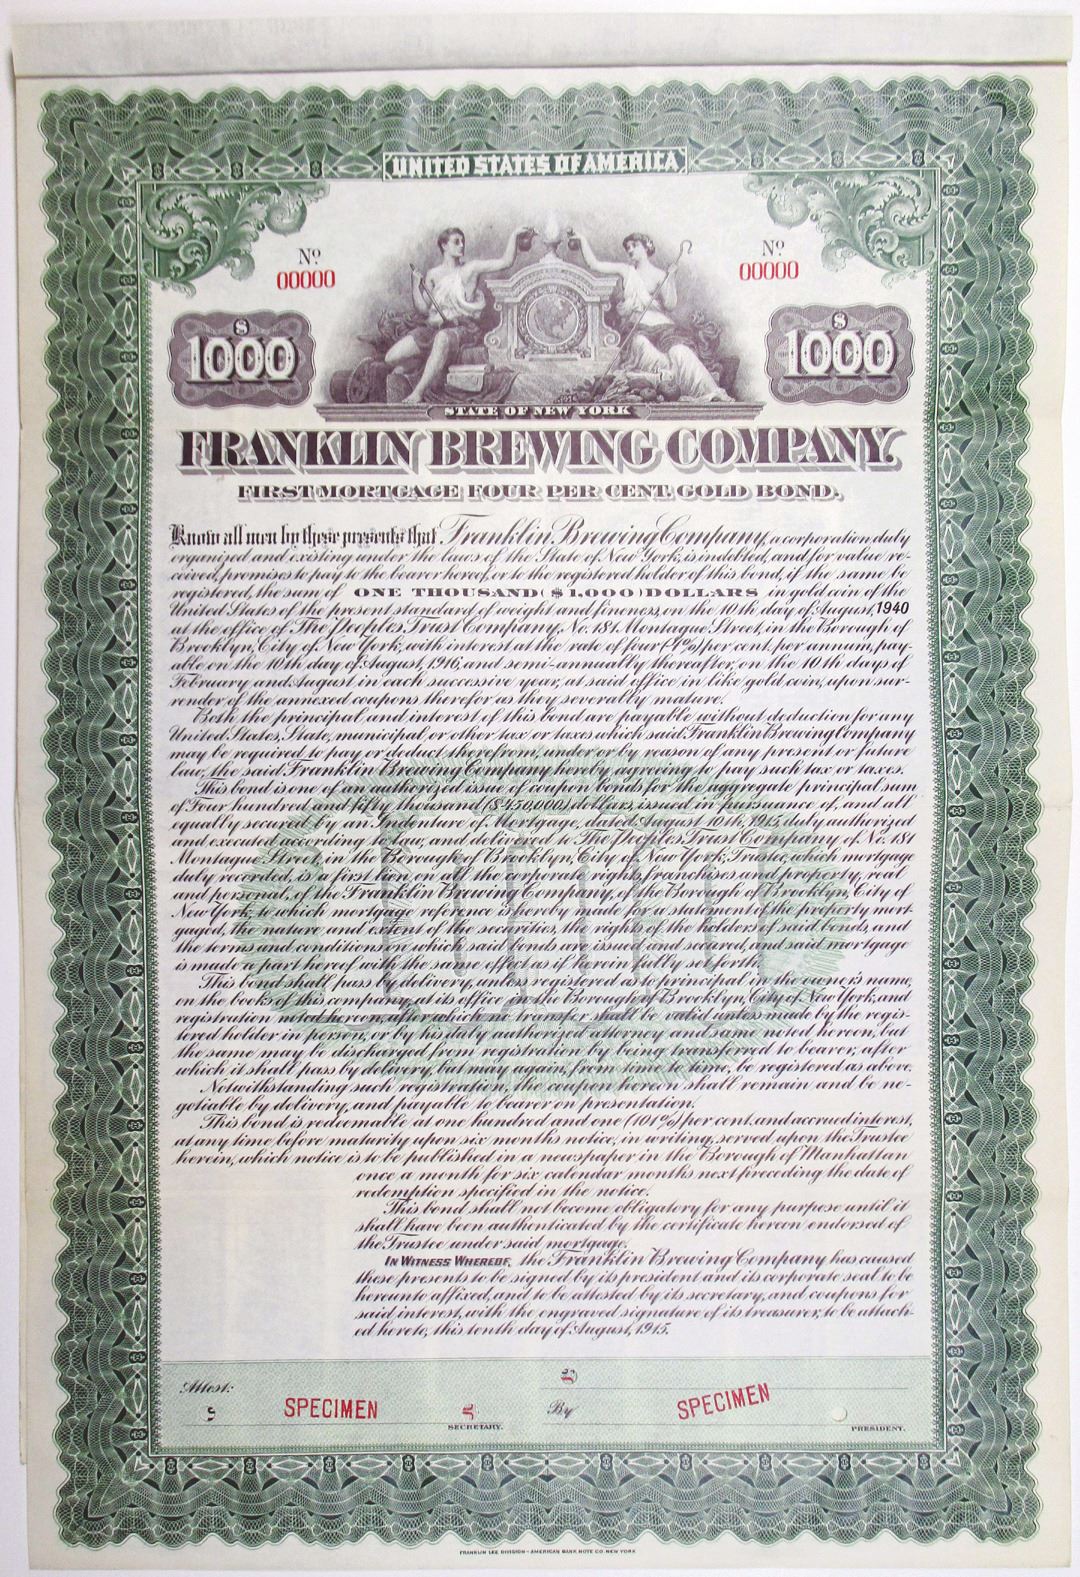 UNITED STATES OF AMERICA
No. 00000
No. 00000
$ 1000
$ 1000
STATE OF NEW YORK
FRANKLIN BREWING COMPANY.
FIRST MORTGAGE FOUR PER CENT. GOLD BOND.
Know all men by these presents that Franklin Brewing Company, a corporation duly
organized and existing under the laws of the State of New York, is indebted, and for value re-
ceived, promises to pay to the bearer hereof, or to the registered holder of this bond, if the same be
registered, the sum of ONE THOUSAND ($1,000) DOLLARS in gold coin of the
United States of the present standard of weight and fineness, on the 10th day of August, 1940
at the office of The Peoples Trust Company, No. 181 Montague Street, in the Borough of
Brooklyn, City of New York, with interest at the rate of four (4%) per cent. per annum, pay-
able on the 10th day of August, 1916, and semi-annually thereafter, on the 10th days of
February and August in each successive year, at said office, in like gold coin, upon sur-
render of the annexed coupons therefor as they severally mature.
Both the principal and interest of this bond are payable without deduction for any
United States, State, municipal, or other tax or taxes which said Franklin Brewing Company
may be required to pay or deduct therefrom, under or by reason of any present or future
law, the said Franklin Brewing Company hereby agreeing to pay such tax or taxes.
This bond is one of an authorized issue of coupon bonds for the aggregate principal sum
of Four hundred and fifty thousand ($450,000) dollars, issued in pursuance of, and all
equally secured by an Indenture of Mortgage, dated August 10th, 1915, duly authorized
and executed according to law, and delivered to The Peoples Trust Company of No. 181
Montague Street, in the Borough of Brooklyn, City of New York, Trustee, which mortgage
duly recorded, is a first lien on all the corporate rights, franchises and property, real
and personal, of the Franklin Brewing Company, of the Borough of Brooklyn, City of
New York, to which mortgage reference is hereby made for a statement of the property mort-
gaged, the nature and extent of the securities, the rights of the holders of said bonds, and
the terms and conditions on which said bonds are issued and secured, and said mortgage
is made a part hereof with the same effect as if herein fully set forth.
This bond shall pass by delivery, unless registered as to principal in the owner's name,
on the books of this company, at its office in the Borough of Brooklyn, City of New York, and
registration noted hereon, after which no transfer shall be valid unless made by the regis-
tered holder in person, or by his duly authorized attorney and same noted hereon, but
the same may be discharged from registration by being transferred to bearer, after
which it shall pass by delivery, but may again, from time to time, be registered as above.
Notwithstanding such registration, the coupon hereon shall remain and be ne-
gotiable by delivery, and payable to bearer on presentation.
This bond is redeemable at one hundred and one (101%) per cent. and accrued interest,
at any time before maturity upon six months notice, in writing, served upon the Trustee
herein, which notice is to be published in a newspaper in the Borough of Manhattan
once a month for six calendar months next preceding the date of
redemption specified in the notice.
This bond shall not become obligatory for any purpose until it
shall have been authenticated by the certificate hereon endorsed of
the Trustee under said mortgage.
IN WITNESS WHEREOF, the Franklin Brewing Company has caused
these presents to be signed by its president and its corporate seal to be
hereunto affixed, and to be attested by its secretary, and coupons for
said interest, with the engraved signature of its treasurer, to be attach-
ed hereto, this tenth day of August, 1915.
Attest:
SPECIMEN
SECRETARY.
By
SPECIMEN
PRESIDENT.
FRANKLIN LEE DIVISION - AMERICAN BANK NOTE CO. NEW YORK